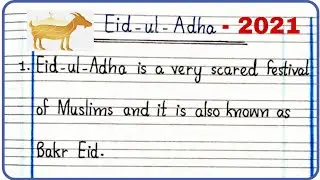 Eid-ul-Adha - 2021
1. Eid-ul-Adha is a very scared festival
of Muslims and it is also known as
Bakr Eid.